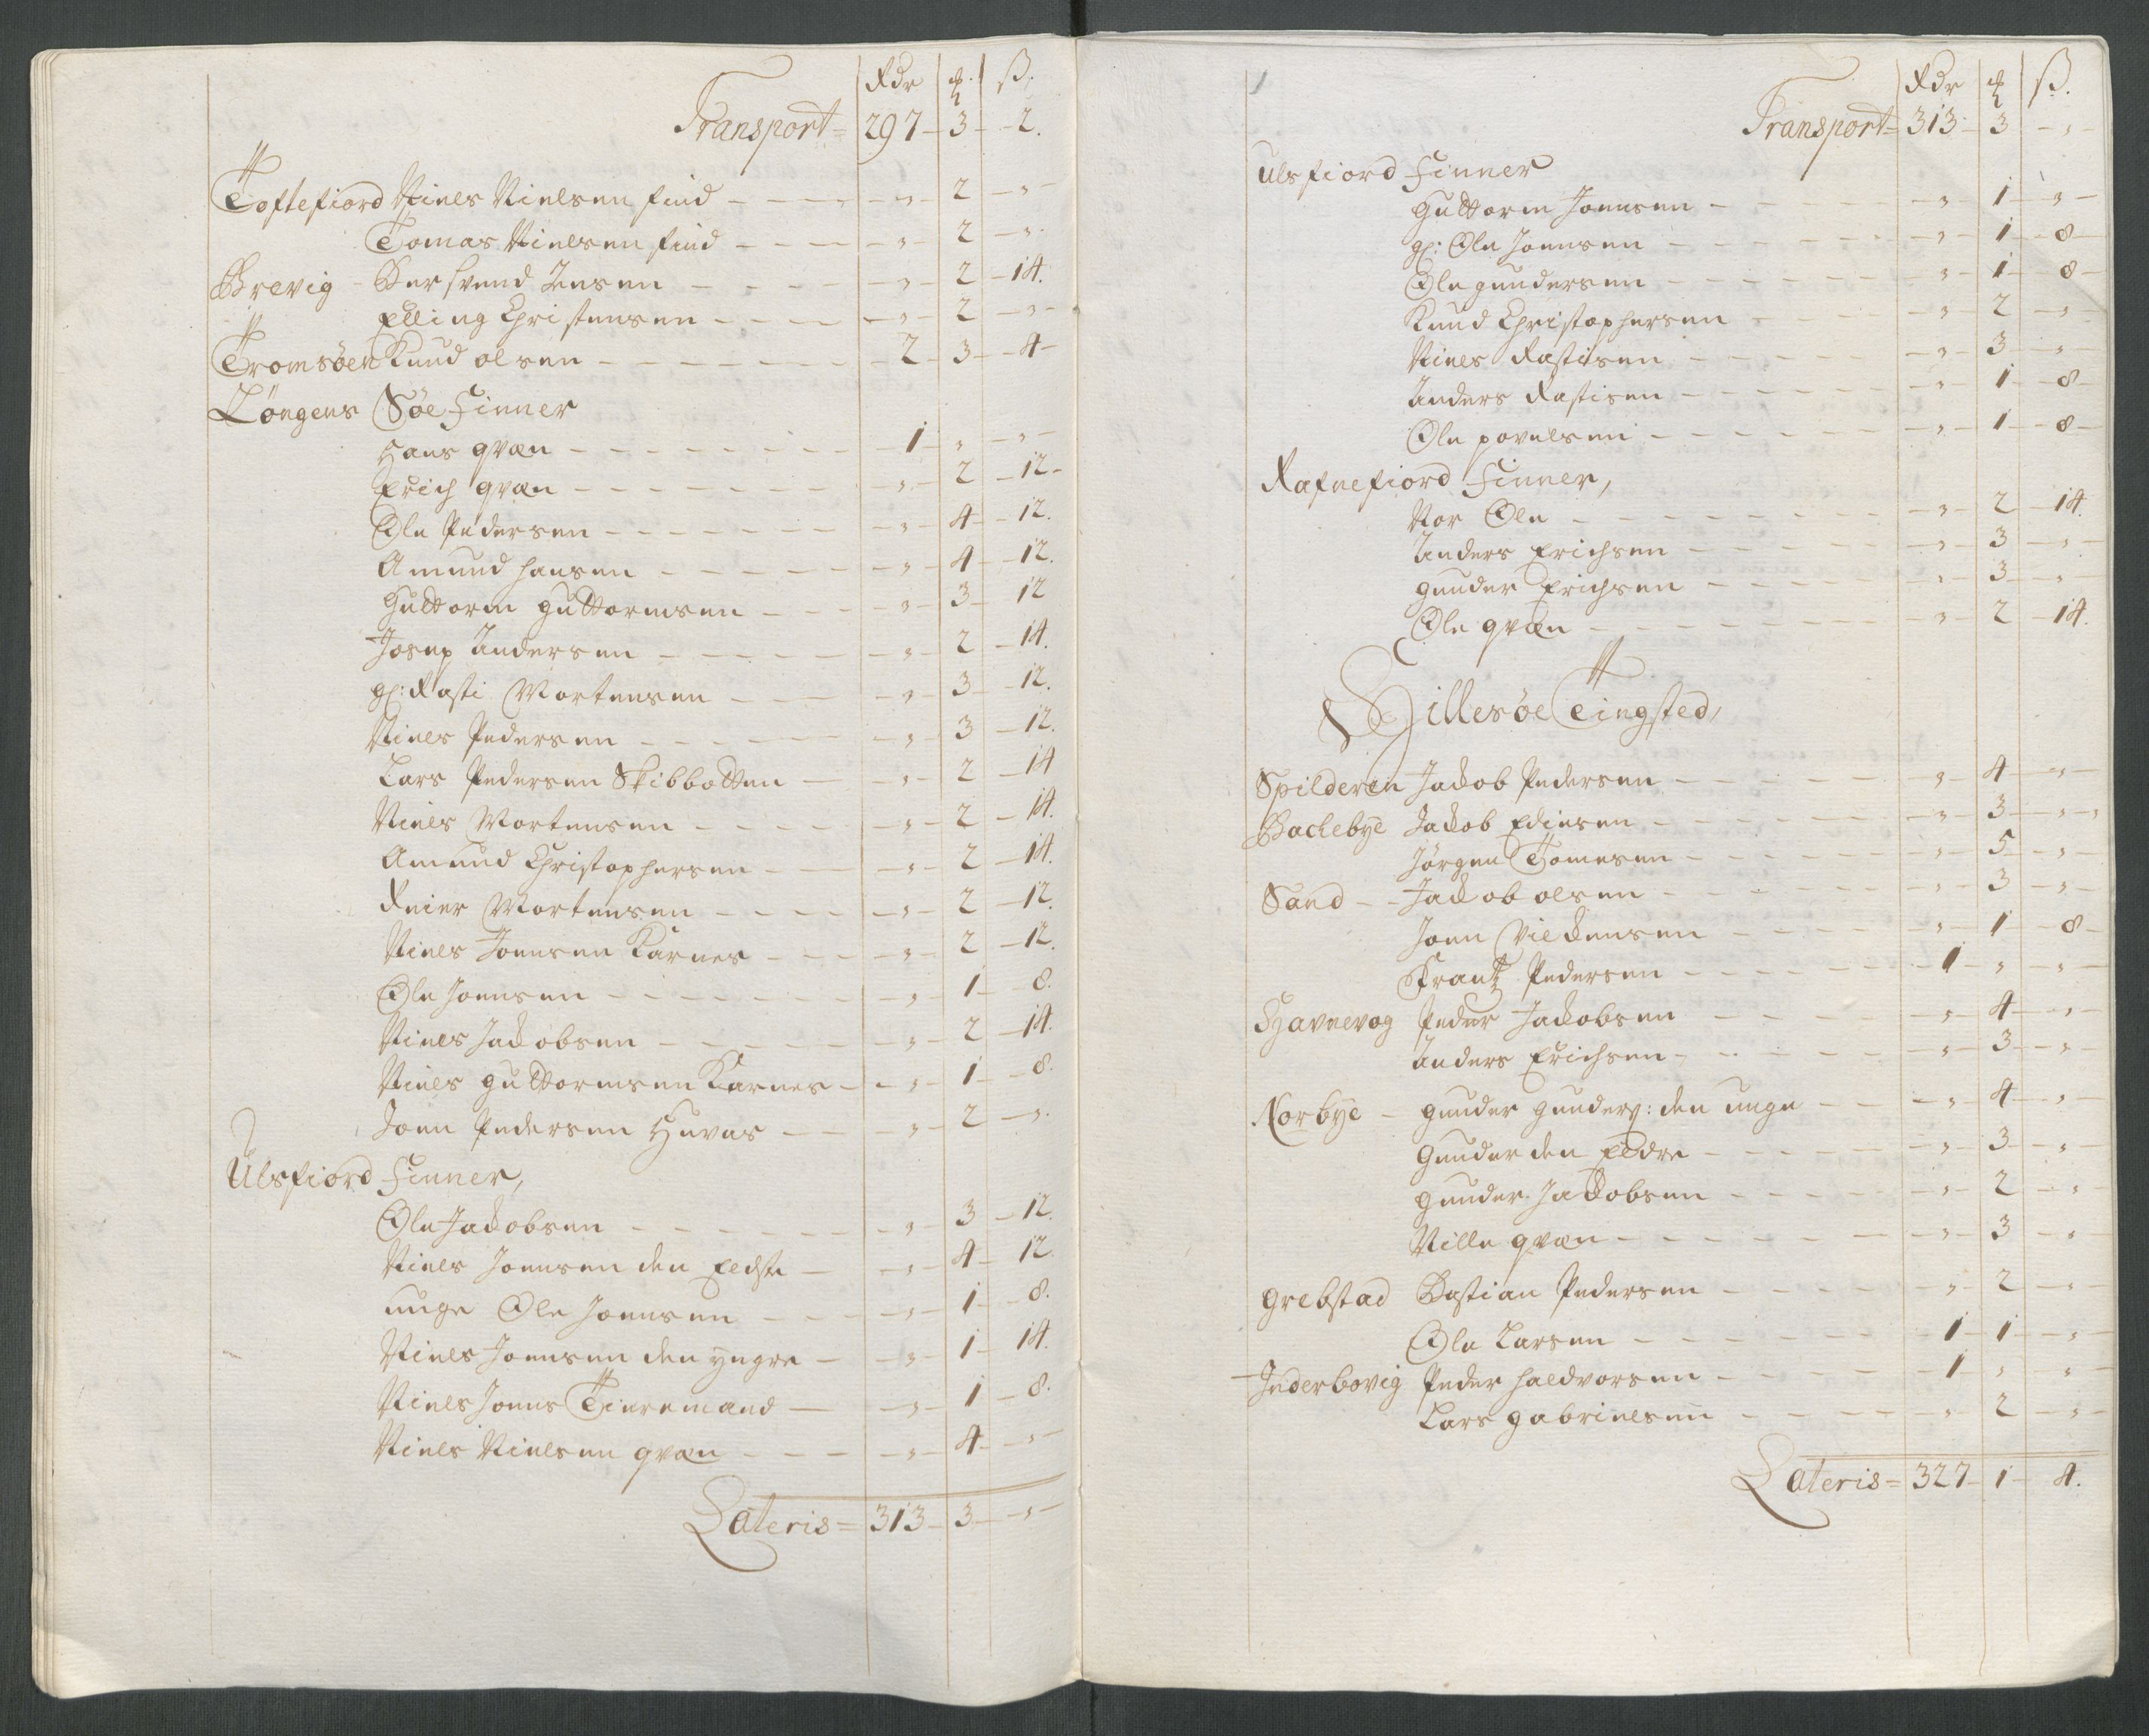 Rdr ort ß.
Transport= 297 - 3 - 2.
Toftefiord Niels Nielsen find - - - - „ - 2 - „ -
Tomas Nielsen find - - - - „ - 2 - „ -
Brevig - Per Svend Jensen - - - - „ - 2 - 14.
Elling Christensen - - - - „ - 2 - „ -
Tromsøen Knud olsen - - - - 2 - 3 - 4 -
Løngens Søe Finner
Hans qvæn - - - - 1 - „ - „ -
Erich qvæn - - - - „ - 2 - 12 -
Ole Pedersen - - - - „ - 4 - 12.
Amund hansen - - - - „ - 4 - 12.
Guttorm guttormsen - - - - „ - 3 - 12
Josep Andersen - - - - „ - 2 - 14.
gl: Rasti Mortensen - - - - „ - 3 - 12.
Niels Pedersen - - - - „ - 3 - 12.
Lars Pedersen Skibbotten - - „ - 2 - 14
Niels Mortensen - - - - „ - 2 - 14.
Amund Christophersen - - - „ - 2 - 14.
Reier Mortensen - - - - „ - 2 - 12.
Niels Joensen Karnes - - - „ - 2 - 12.
Ole Joensen - - - - „ - 1 - 8.
Niels Jackobsen - - - - „ - 2 - 14.
Niels guttormsen Karnes - - „ - 1 - 8.
Joen Pedersen Huvas - - „ - 2 - „ -
Ulsfiord Finner,
Ole Jackobsen - - - - „ - 3 - 12.
Niels Joensen den Eldste - „ - 4 - 12.
unge Ole Joensen - - - „ - 1 - 8.
Niels Joensen den yngre - - „ - 1 - 14.
Niels Joens Tienemand - - „ - 1 - 8.
Niels Nielsen qvæn - - - - „ - 4 - „ -
Lateris = 313 - 3 - „ -
Rdr ort ß.
Transport= 313 - 3 - „ -
Ulsfiord Finner
Guttorm Joensen - - - - „ - 1 - „ -
gl: Ole Joensen - - - - „ - 1 - 8 -
Ole gundersen - - - - „ - 1 - 8 -
Knud Christophersen - - - „ - 2 - „ -
Niels Rastisen - - - - „ - 3 - „ -
Anders Rastisen - - - - „ - 1 - 8 -
Ole povelsen - - - - „ - 1 - 8 -
Rafnefiord Finner,
Nor Ole - - - - „ - 2 - 14.
Anders Erichsen - - - - „ - 3 - „ -
gunder Erichsen - - - - „ - 3 - „ -
Ole qvæn - - - - „ - 2 - 14.
Hillesøe Tingsted,
Spilderen Jackob Pedersen - - - - „ - 4 - „ -
Bachebye Jackob Edisen - - - - „ - 3 - „ -
Jørgen Tomesen - - - - „ - 5 - „ -
Sand - - Jackob olsen - - - - „ - 3 - „ -
Joen Vilckensen - - - - „ - 1 - 8 -
Frantz Pedersen - - - - 1 - „ - „ -
Havnevog Peder Jackobsen - - - - „ - 4 - „ -
Anders Erichsen - - - - „ - 3 - „ -
Norbye - gunder gunders: den unge - - „ - 4 - „ -
Gunder den Eldre - - - - „ - 3 - „
gunder Jackobsen - - - - „ - 2 - „ -
Nille qvæn - - - - „ - 3 - „
grebstad Bastian Pedersen - - - - „ - 2 - „ -
Ole Larsen - - - - 1 - 1 - „ -
Inderbovig Peder haldvorsen - - - - 1 - „ - „
Lars gabrielsen - - - - „ - 2 - „ -
Lateris = 327 - 1 - 4.